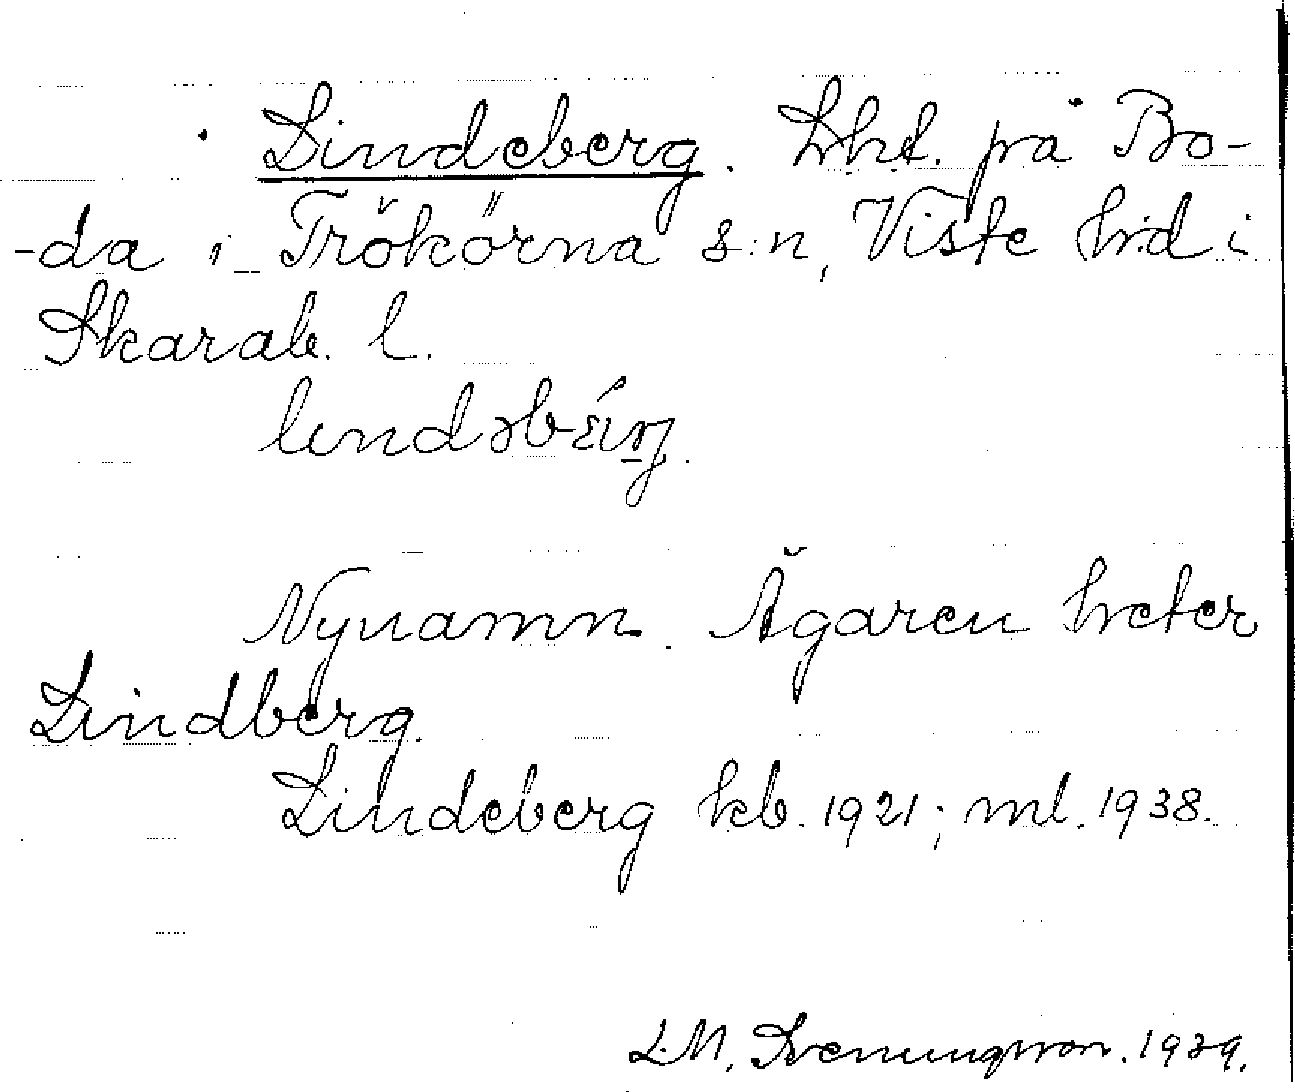 Lindeberg. Lht. på Bo-
-da i Trökörna s:n, Viste hd i
Skarab. l.
Nynamn. Ägaren heter
Lindberg.
Lindeberg kb. 1921; ml. 1938.
L.M. Svenungsson. 1939.